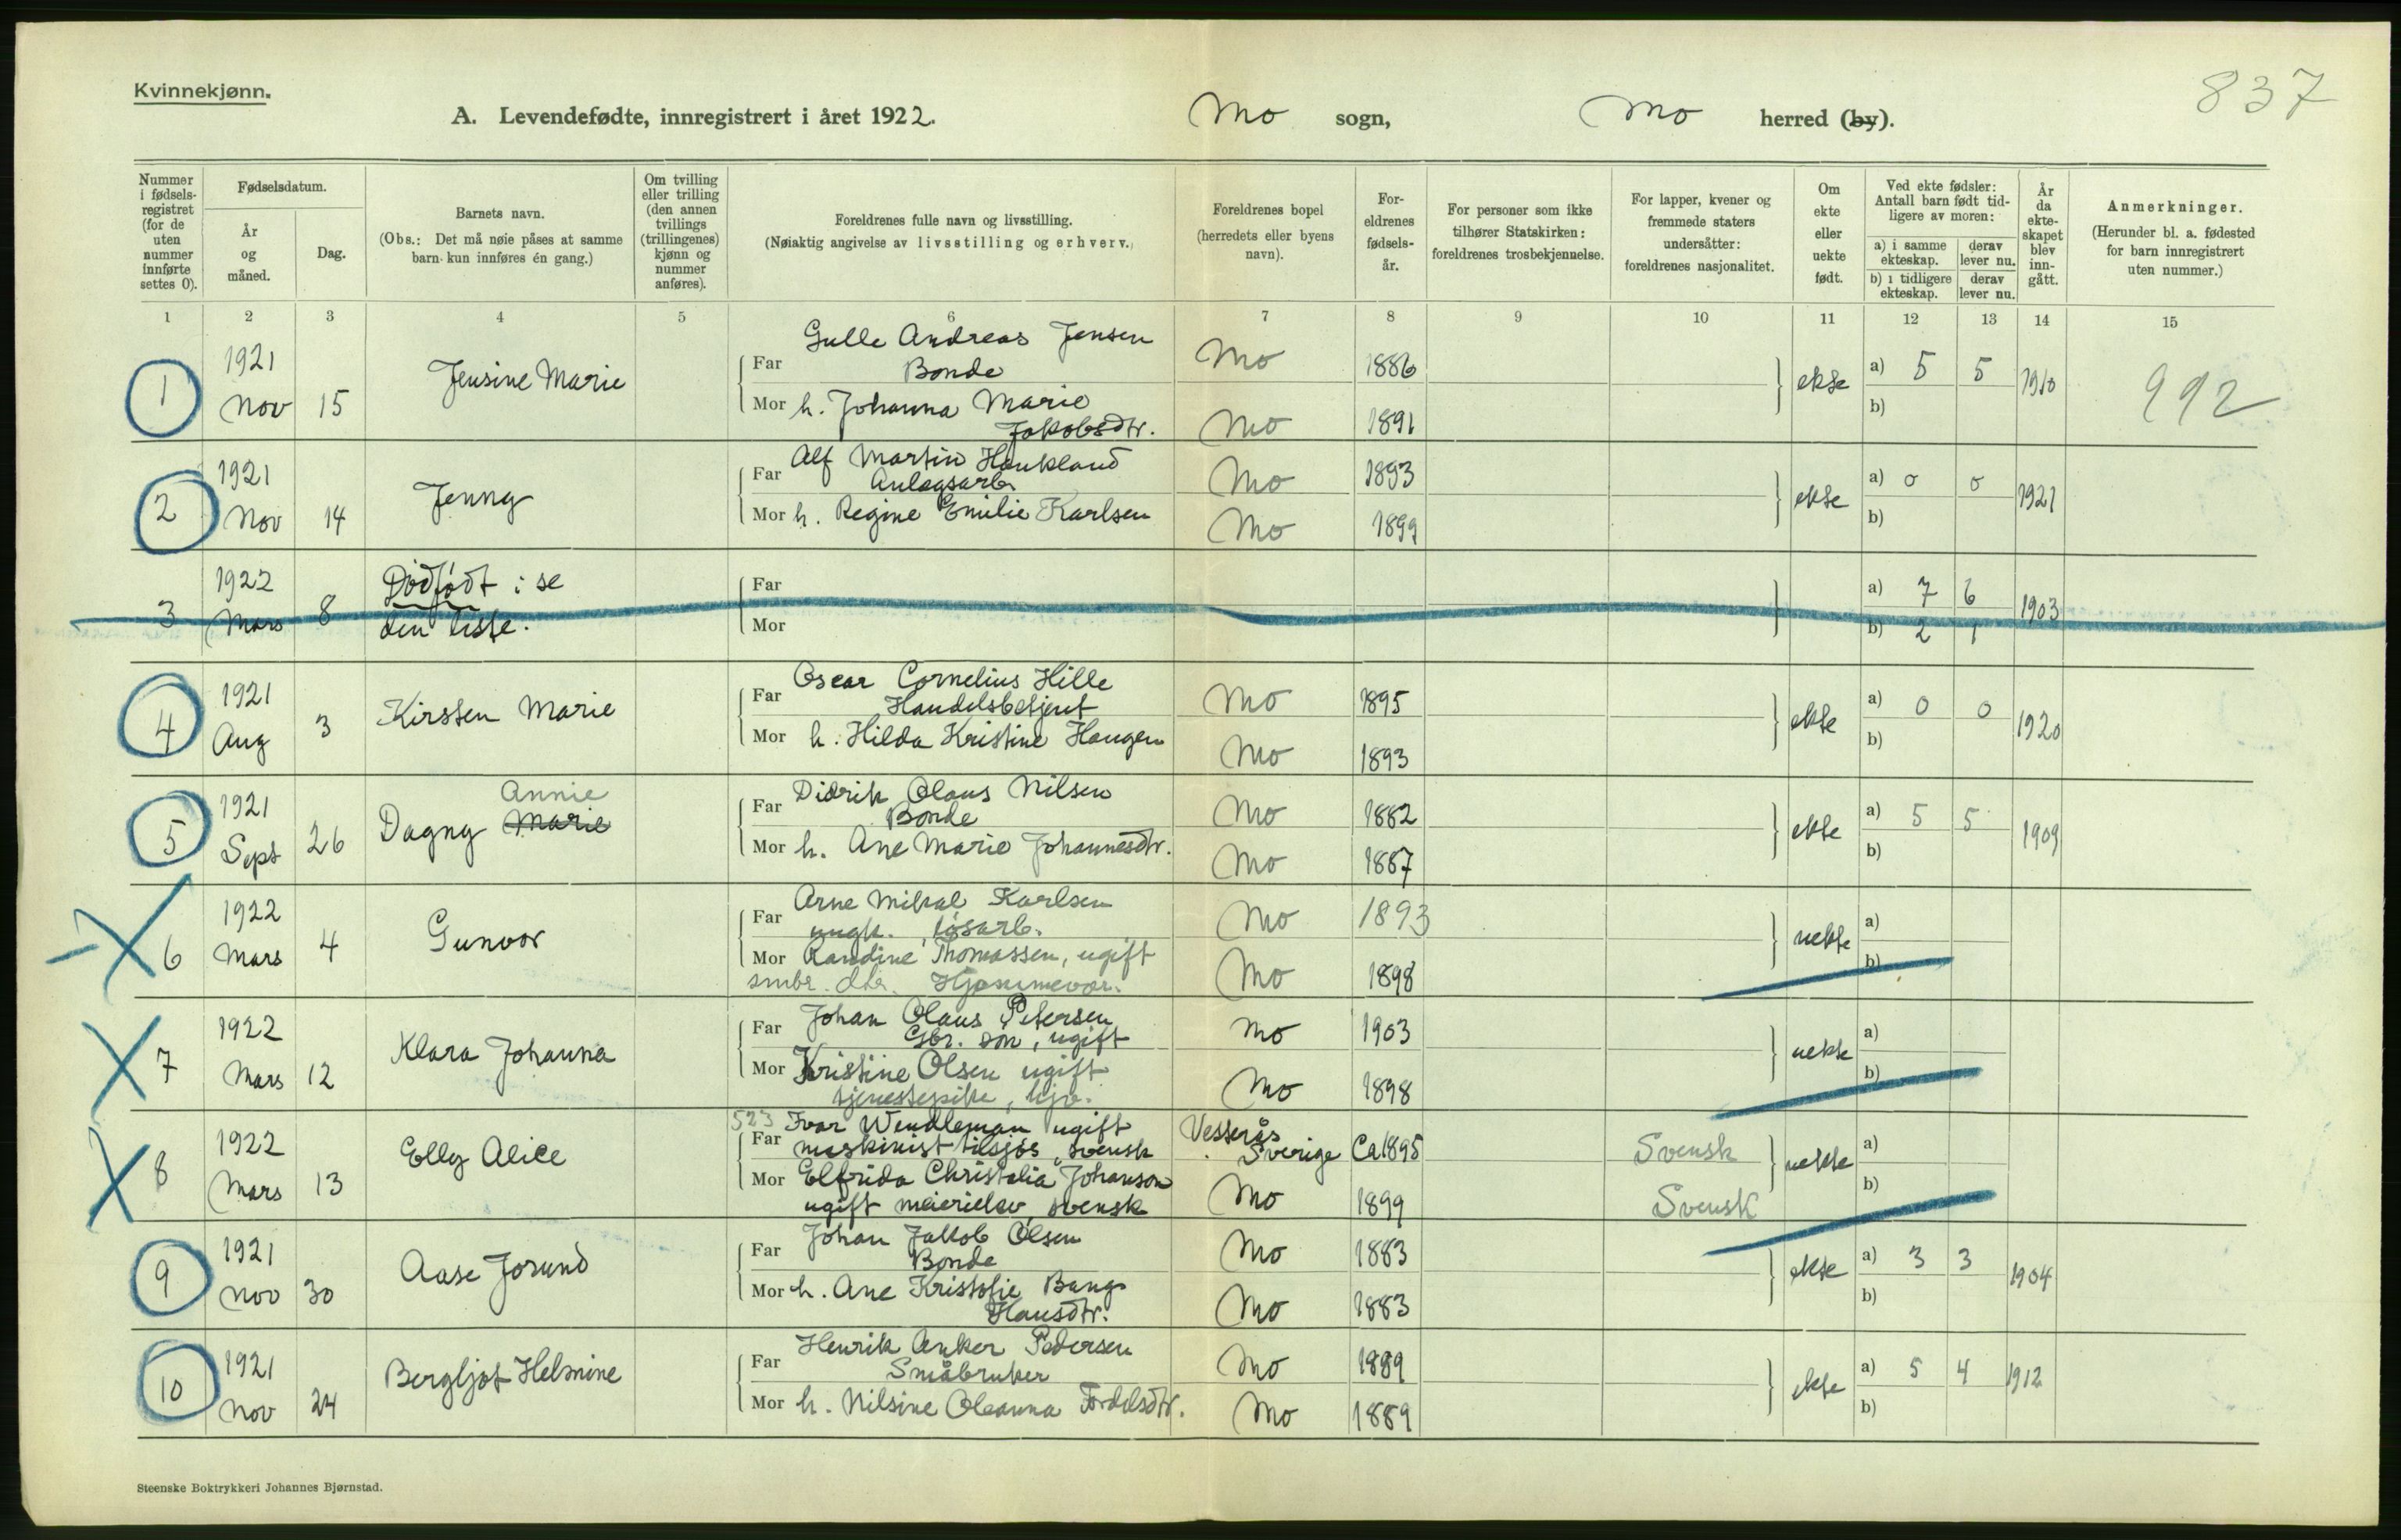 Kvinnekjønn.
837
A. Levendefødte, innregistrert i året 1922. Mo sogn, Mo herred (by).
Nummer i fødsels-registret (for de uten nummer innførte settes 0).
Fødselsdatum.
År og måned.
Dag.
Barnets navn.
(Obs.: Det må nøie påses at samme barn kun innføres én gang.)
Om tvilling eller trilling (den annen tvillings (trillingenes) kjønn og nummer anføres).
Foreldrenes fulle navn og livsstilling.
(Nøiaktig angivelse av livsstilling og erhverv.)
Foreldrenes bopel (herredets eller byens navn).
For-eldrenes fødsels-år.
For personer som ikke tilhører Statskirken: foreldrenes trosbekjennelse.
For lapper, kvener og fremmede staters undersåtter: foreldrenes nasjonalitet.
Om ekte eller uekte født.
Ved ekte fødsler: Antall barn født tid-ligere av moren:
a) i samme ekteskap. derav lever nu.
b) i tidligere ekteskap. derav lever nu.
År da ekte-skapet blev inn-gått.
Anmerkninger.
(Herunder bl. a. fødested for barn innregistrert uten nummer.)
1 2 3 4 5 6 7 8 9 10 11 12 13 14 15
1 1921 Nov 15 Jensine Marie
Far Gulle Andreas Jensen Bonde Mo 1886
Mor h. Johanna Marie Jakobsdtr. Mo 1891
ekte a) 5 5 b) 1910 992
2 1921 Nov 14 Jenny
Far Alf Martin Haukland Anlegsarb Mo 1893
Mor h. Regine Emilie Karlsen Mo 1899
ekte a) 0 0 b) 1921
3 1922 Mars 8 Dødfødt: se den liste.
Far
Mor
a) 7 6 b) 2 1 1903
4 1921 Aug 3 Kirsten Marie
Far Oscar Cornelius Hille Handelsbetjent Mo 1895
Mor h. Hilda Kristine Haugen Mo 1893
ekte a) 0 0 b) 1920
5 1921 Sept 26 Dagny Marie Annie
Far Didrik Olaus Nilsen Bonde Mo 1882
Mor h. Ane Marie Johannesdtr. Mo 1887
ekte a) 5 5 b) 1909
6 1922 Mars 4 Gunvor
Far Arne Mikal Karlsen ungk. løsarb. Mo 1893
Mor Randine Thomassen, ugift smbr. dtr. Hjemmevær. Mo 1898
uekte a) b)
7 1922 Mars 12 Klara Johanna
Far Johan Olaus Petersen Gbr. søn, ugift Mo 1903
Mor Kristine Olsen ugift tjenestepike, hjv. Mo 1898
uekte a) b)
8 1922 Mars 13 Elly Alice
523
Far Ivar Wendleman ugift maskinist tilsjøs, svensk Vesterås Sverige Ca 1895 Svensk
Mor Elfrida Christalia Johanson ugift meierielev, svensk Mo 1899 Svensk
uekte a) b)
9 1921 Nov 30 Aase Jorund
Far Johan Jakob Olsen Bonde Mo 1883
Mor h. Ane Kristofie Bang Hansdtr. Mo 1883
ekte a) 3 3 b) 1904
10 1921 Nov 24 Bergljot Helmine
Far Henrik Anker Pedersen Småbruker Mo 1889
Mor h. Nilsine Oleanna Fordelsdtr. Mo 1889
ekte a) 5 4 b) 1912
Steenske Boktrykkeri Johannes Bjørnstad.